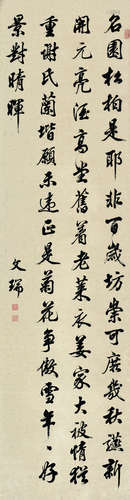 名園松柏是耶非百歲坊崇可庶幾秋讌新
開元亮酒高堂舊着老萊衣姜家大被情猶
重謝氏蘭堦願未違正是菊花爭傲雪年〻好
景對晴暉
文瑞